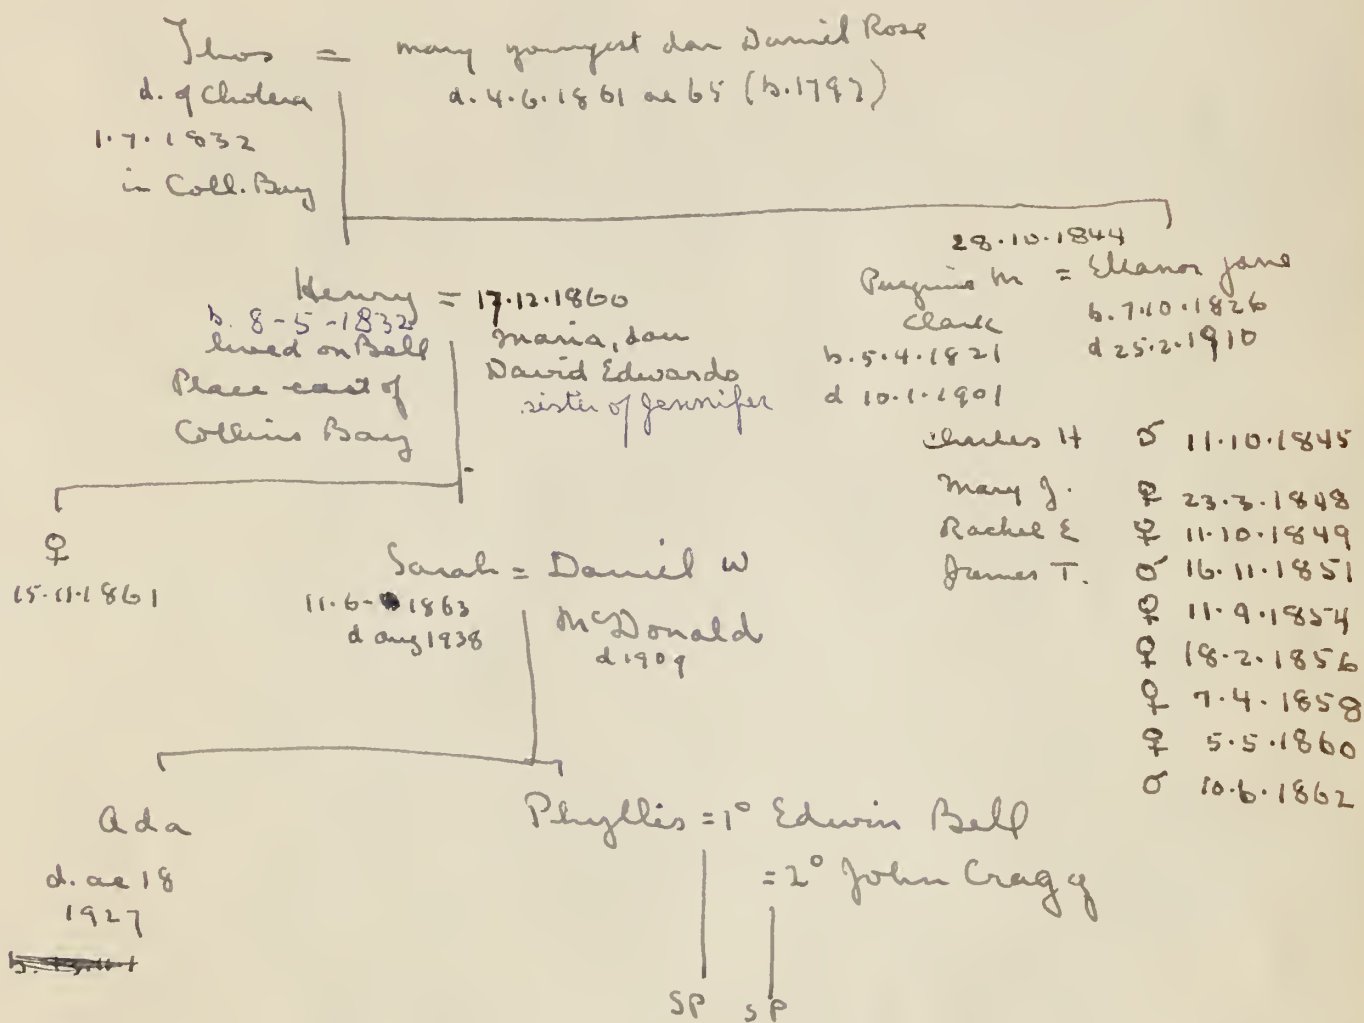 Thos = Mary youngest dau Daniel Rose
d. of Cholera
1.7.1832
in Coll. Bay
d. 4.6.1861 ae 65 (b. 1797)
Henry = 17.12.1860
b. 8-5-1832
lived on Bell
Place east of
Collins Bay
Maria, dau
David Edwards
sister of Jennifer
28.10.1844
M = Eleanor Jane
Clark
b. 5.4.1821
d 10.1.1901
b. 7.10.1826
d 25.2.1910
Charles H ♂ 11.10.1845
Mary J. ♀ 23.3.1848
Rachel E ♀ 11.10.1849
James T. ♂ 16.11.1851
♀ 11.9.1854
♀ 18.2.1856
♀ 7.4.1858
♀ 5.5.1860
♂ 10.6.1862
♀
15.11.1861
Sarah = Daniel W
McDonald
11.6-1863
d aug 1938
d 1909
Ada
d. ae 18
1927
Phyllis = 1° Edwin Bell
= 2° John Cragg
SP SP